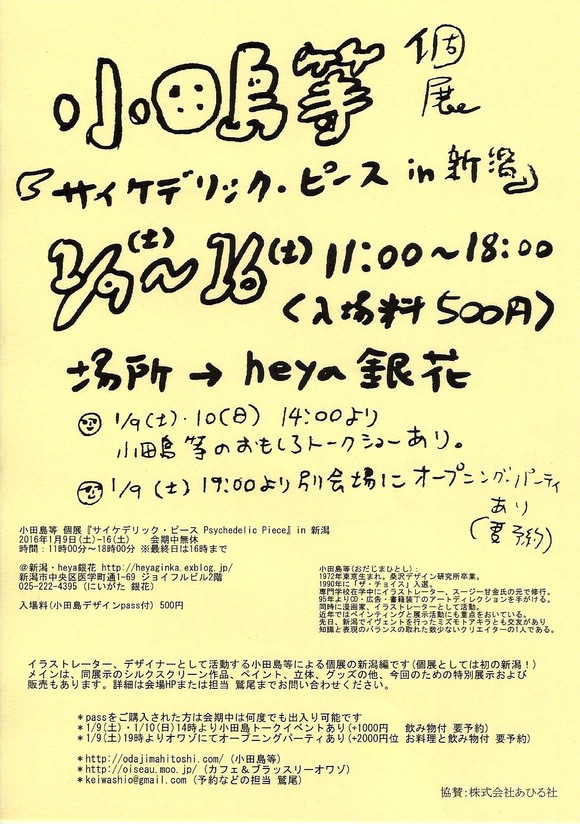 小田島等 個展
『サイケデリック・ピース in 新潟』
1/9(土)〜16(土) 11:00〜18:00
(入場料500円)
場所→heya銀花
1/9(土)・10(日) 14:00より
小田島等のおもしろトークショーあり。
1/9(土)19:00より別会場にオープニングパーティ
あり
(要予約)
小田島等 個展『サイケデリック・ピース Psychedelic Piece』in 新潟
2016年1月9日(土)-16(土)　会期中無休
時間：11時00分〜18時00分 ※最終日は16時まで
＠新潟・heya銀花 http://heyaginka.exblog.jp/
新潟市中央区医学町通1-69 ジョイフルビル2階
025-222-4395 (にいがた 銀花)
入場料(小田島デザインpass付) 500円
小田島等(おだじまひとし)：
1972年東京生まれ。桑沢デザイン研究所卒業。
1990年に『ザ・チョイス』入選。
専門学校在学中にイラストレーター、スージー甘金氏の元で修行。
95年よりCD・広告・書籍装丁のアートディレクションを手がける。
同時に漫画家、イラストレーターとして活動。
近年ではペインティングと展示活動にも重点をおいている。
先日、新潟でイヴェントを行ったミズモトアキラとも交友があり
知識と表現のバランスの取れた数少ないクリエイターの1人である。
イラストレーター、デザイナーとして活動する小田島等による個展の新潟編です(個展としては初の新潟！)
メインは、同展示のシルクスクリーン作品、ペイント、立体、グッズの他、今回のための特別展示および
販売もあります。詳細は会場HPまたは担当 鷲尾までお問い合わせください。
＊passをご購入された方は会期中は何度でも出入り可能です
＊1/9(土)・1/10(日)14時より小田島トークイベントあり(+1000円　飲み物付 要予約)
＊1/9(土)19時よりオワゾにてオープニングパーティあり(+2000円位 お料理と飲み物付 要予約)
＊http://odajimahitoshi.com/ (小田島等)
＊http://oiseau.moo.jp/ (カフェ＆ブラッスリーオワゾ)
＊keiwashio@gmail.com (予約などの担当 鷲尾)
協賛：株式会社あひる社